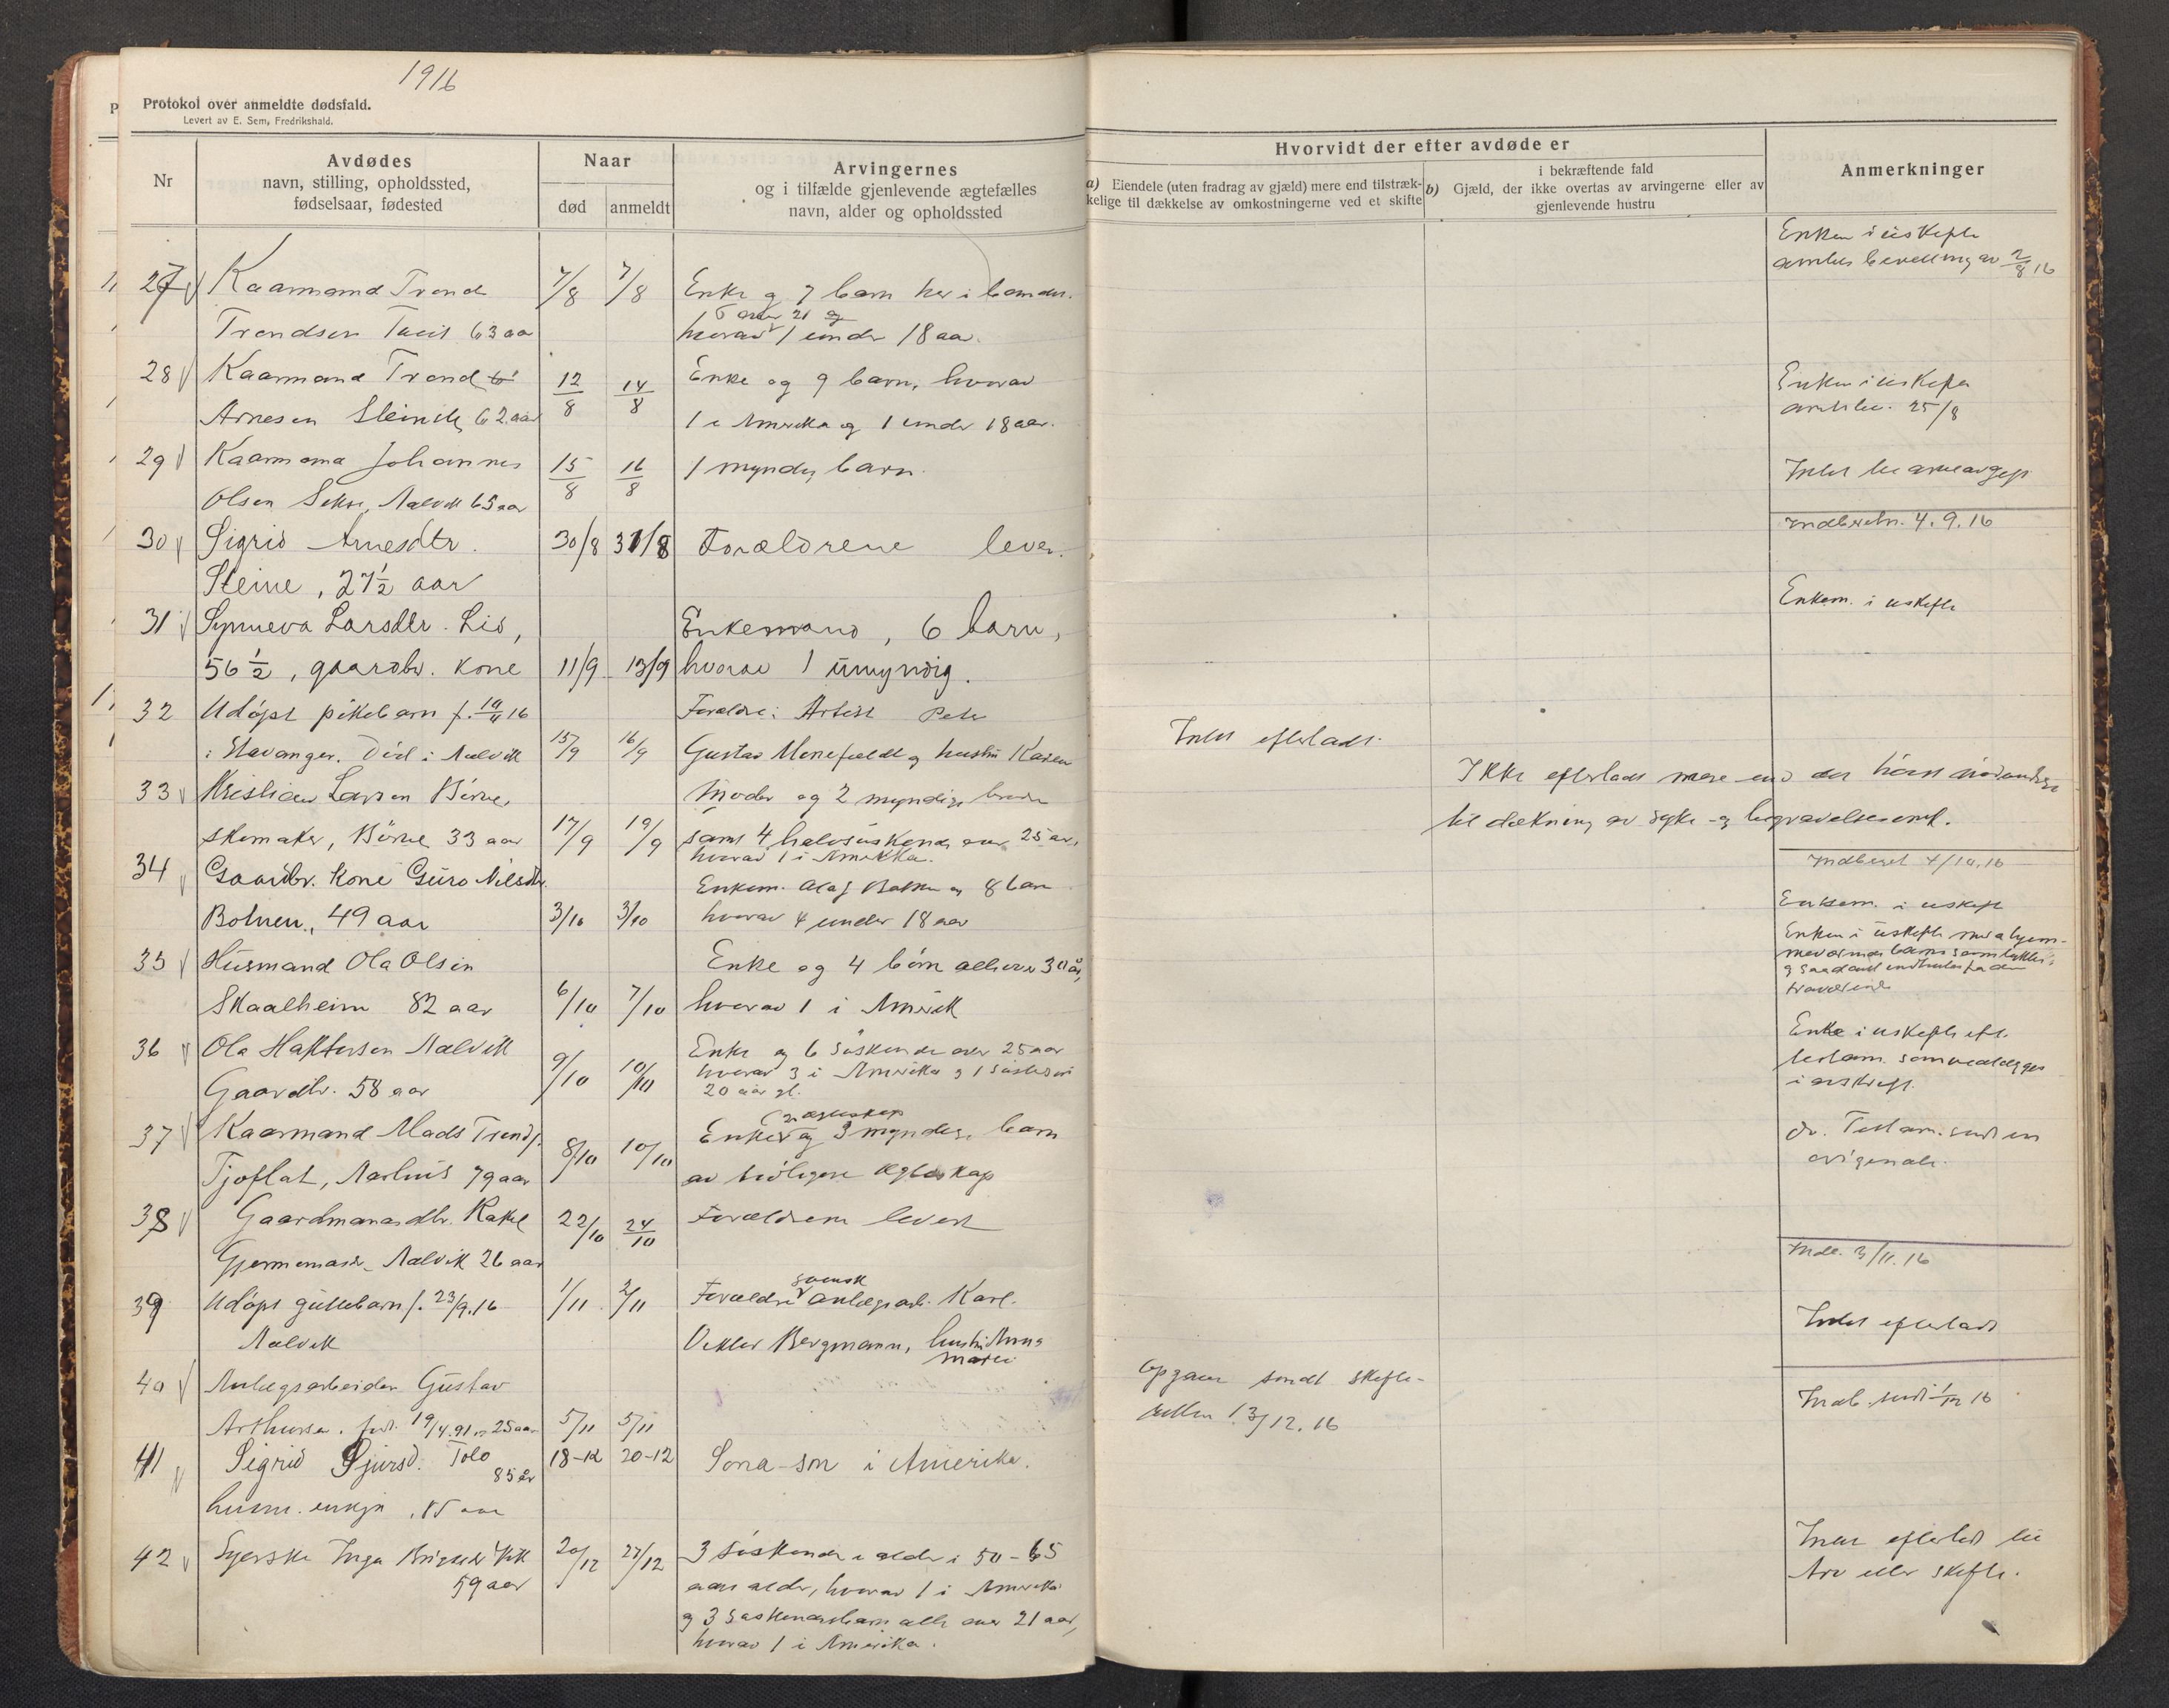 1916
Protokol over anmeldte dødsfald.
Levert av E. Sem, Fredrikshald.
Nr
Avdødes
navn, stilling, opholdssted,
fødselsaar, fødested
Naar
død
anmeldt
Arvingernes
og i tilfælde gjenlevende ægtefælles
navn, alder og opholdssted
Hvorvidt der efter avdøde er
a) Eiendele (uten fradrag av gjæld) mere end tilstræk-
kelige til dækkelse av omkostningerne ved et skifte
i bekræftende fald
b) Gjæld, der ikke overtas av arvingerne eller av
gjenlevende hustru
Anmerkninger
27 Kaarmand Trond 7/8 7/8 Enke og 7 barn her i
Trondsen 63 aa hvorav 5 over 21 og 1 under 18 aar.
Enken i uskifte
av 2/8 16
28 Kaarmand Trond 12/8 14/8 Enke og 9 barn, hvorav
Arnesen Steine 62 aar 1 i Amerika og 1 under 18 aar.
Enken i uskifte
25/8
29 Kaarmand Johannes 15/8 16/8 1 myndig barn.
Olsen Sekse, Aalvik 65 aar
Intet
30 Sigrid Arnesdtr. 30/8 31/8 Forældrene lever.
Steine, 27½ aar
Indberetn. 4.9.16
31 Synneva Larsdtr. Lid, Enkemand, 6 barn,
56½, gaardbr. kone 11/9 13/9 hvorav 1 umyndig.
Enkem. i uskifte
32 Udøpt pikebarn f. 16 Forældre: Artist Peter
i Stavanger. Død i Aalvik 15/9 16/9 Gustav og hustru Karen
Intet efterladt.
33 Kristian Larsen Børve, Moder og 2 myndige
skomaker, Børve 33 aar 17/9 19/9 samt 4 halvsøskende over 25 aar,
hvorav 1 i Amerika.
Ikke efterladt mere end der
til dækning av syke- og begravelsesomk.
Indberet 4/10.16
34 Gaardbr. kone Guro Nilsdtr. Enkem. Olaf og 8 barn
Botnen, 49 aar 3/10 3/10 hvorav 4 under 18 aar
Enkem. i uskifte
35 Husmand Ola Olsen Enke og 4 børn alle over 30 år,
Skaalheim 82 aar 6/10 7/10 hvorav 1 i Amerik
Enken i uskifte
36 Ola Aalvik 9/10 10/10 Enke og 6 Søskende over 25 aar
Gaardbr. 58 aar hvorav 3 i Amerika og 1
20 aar gl.
Enke i uskifte
testam. som
37 Kaarmand Mads Tronds. 8/10 10/10 Enke og 3 myndige barn
Tjoflat, Aarhus 79 aar av tidligere ægteskap
Testam.
38 Gaardmandsdtr. Rakel 22/10 24/10 Forældrene
Aalvik 26 aar
Indb. 3/11.16
39 Udøpt guttebarn f. 23/9.16 1/11 2/11 Forældre svensk anlægsarb. Karl
Aalvik Viktor Bergmann, hustru Anna
Maria
Intet efterladt
40 Anlægsarbeider Gustav
Arthursen. født 19/4.91 25 aar 5/11 5/11
Opgave sendt skifte-
retten 13/12.16
Indb. sendt 1/12 16
41 Sigrid Sjursd. Tolo 18-12 20-12 Sona-son i Amerika.
85 år
husm. enkja, 85 aar
42 Syerske Inga 20/12 27/12 3 søskende i alder i 50-65
59 aar aars alder, hvorav 1 i Amerika
og 3 søskendebarn alle over 21 aar,
hvorav 1 i Amerika.
Intet efterladt til
Arv eller skifte.